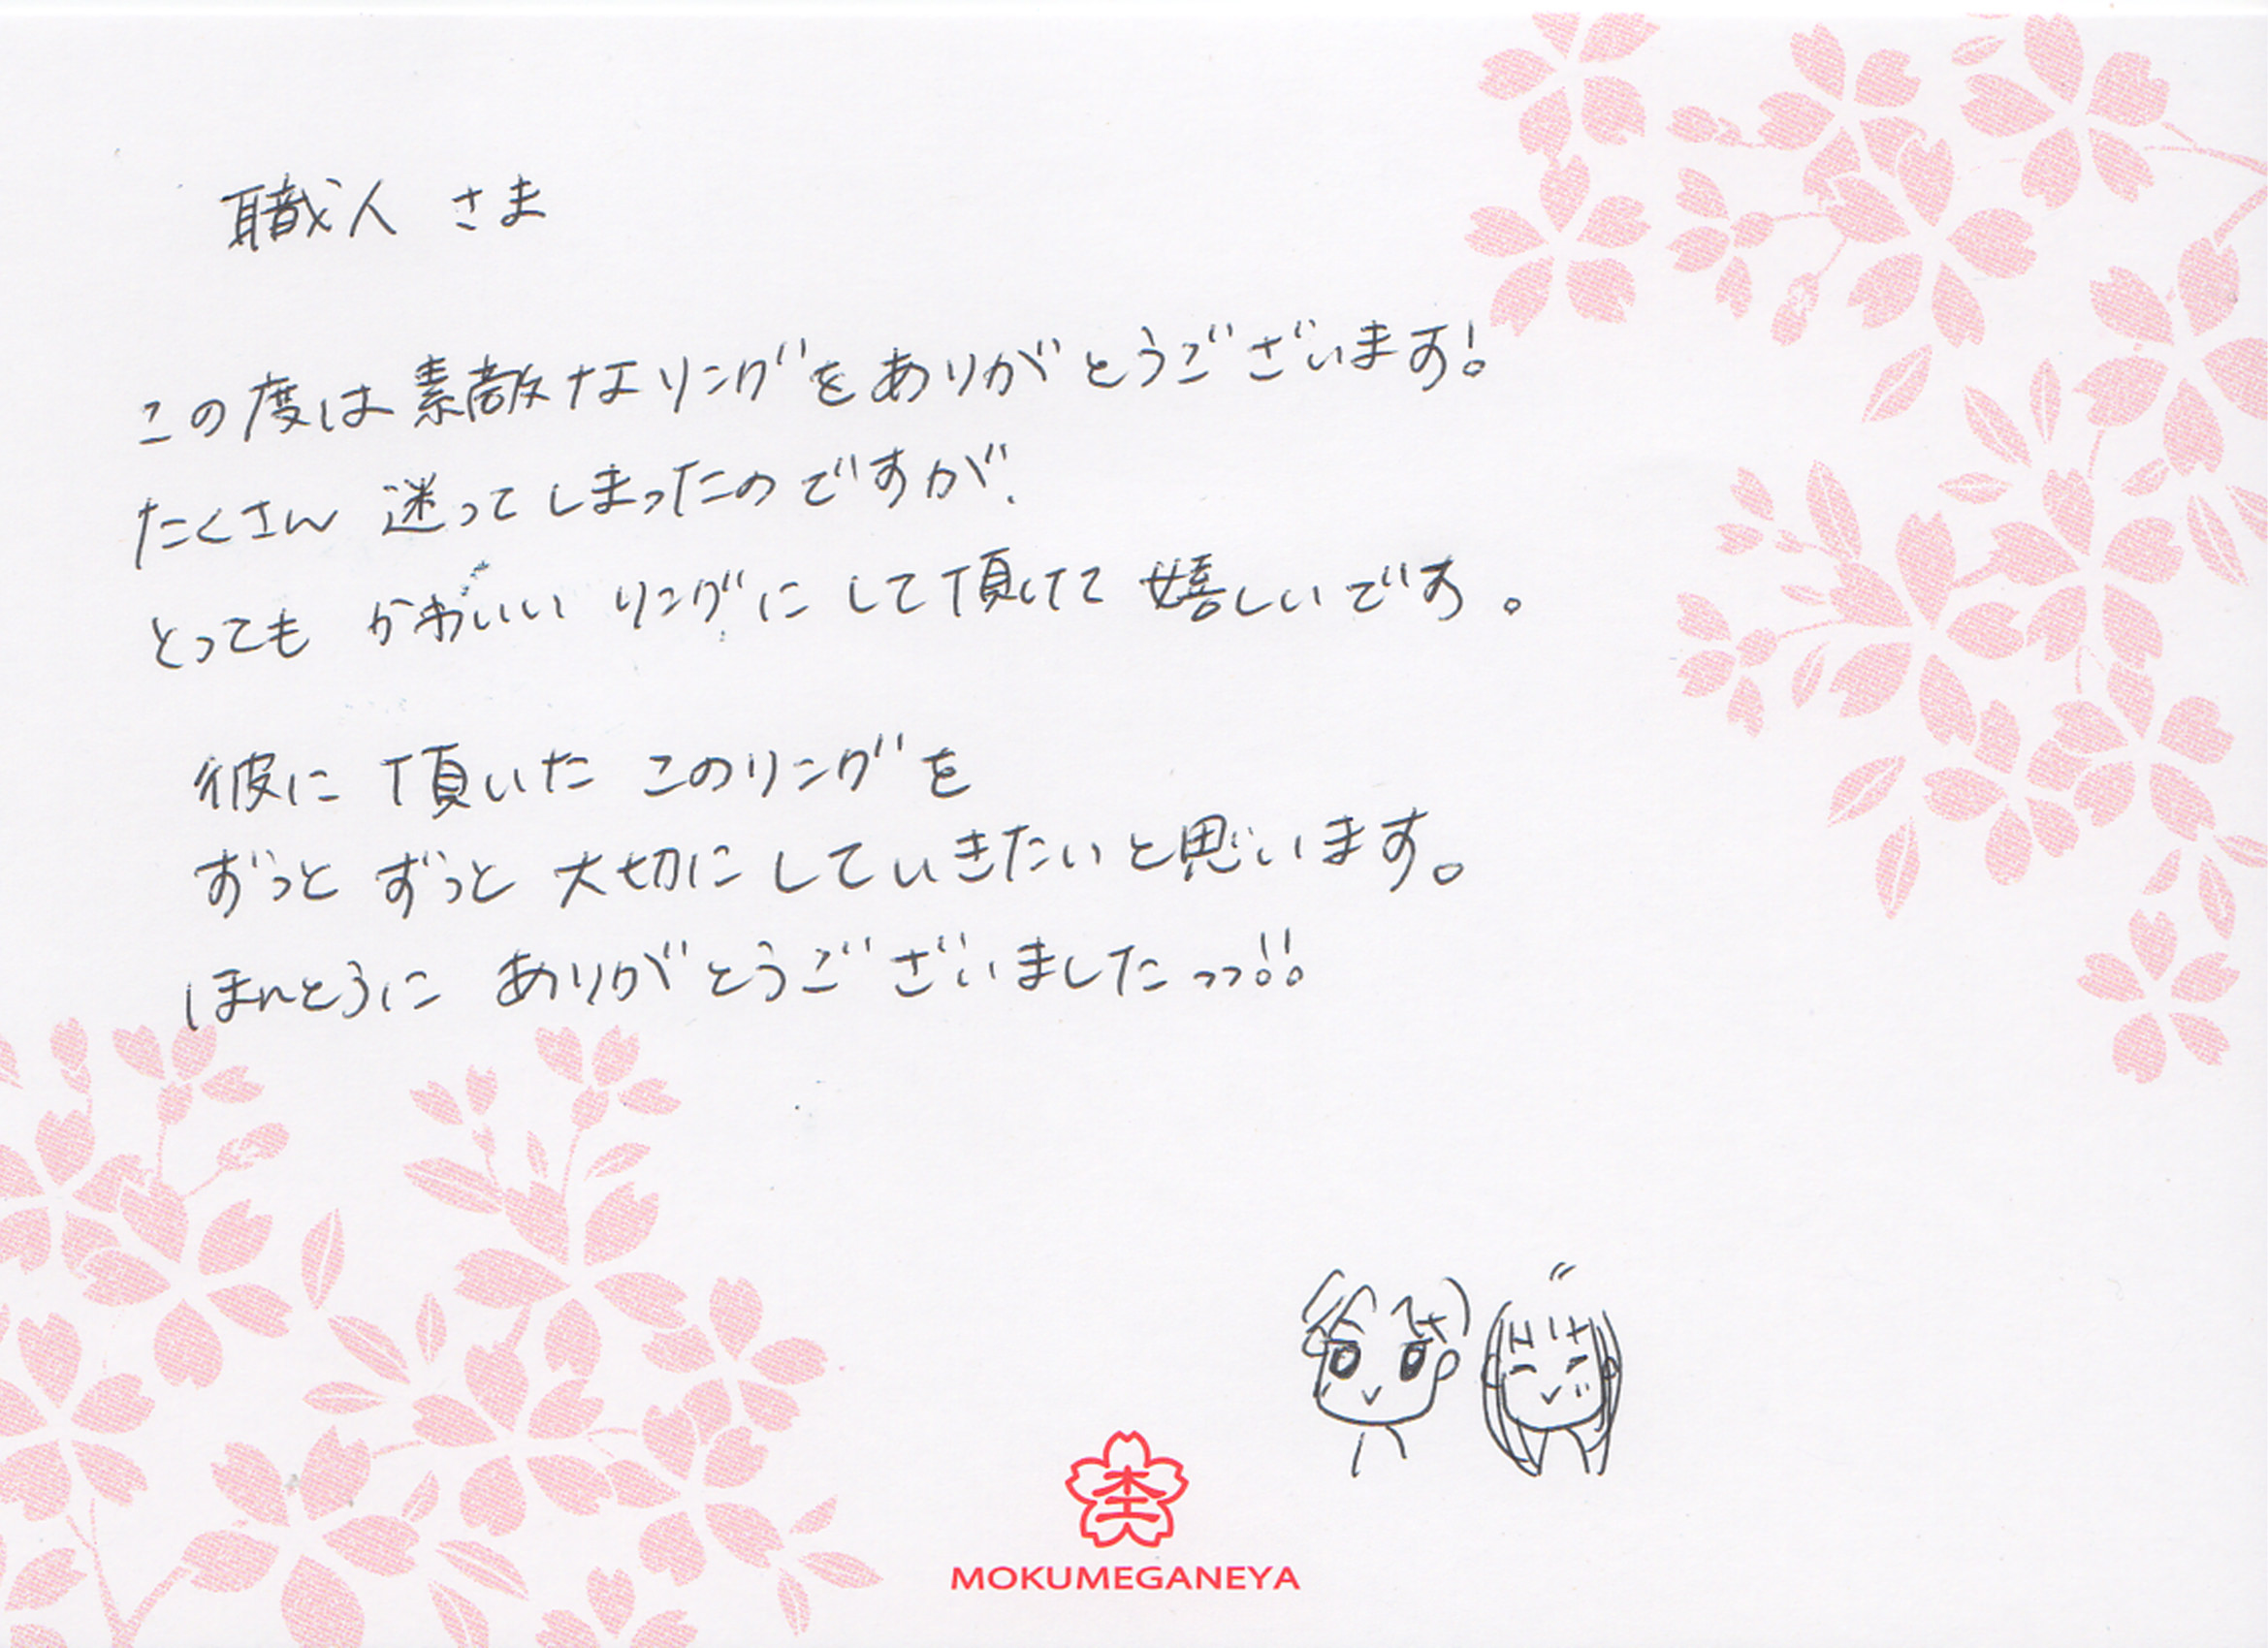 職人 さま
この度は素敵なリングをありがとうございます!
たくさん 迷ってしまったのですが、
とっても かわいい リングに して頂けて 嬉しいです。
彼に 頂いた このリングを
ずっと ずっと 大切にしていきたいと思います。
ほんとうに ありがとうございましたっっ!!
杢
MOKUMEGANEYA